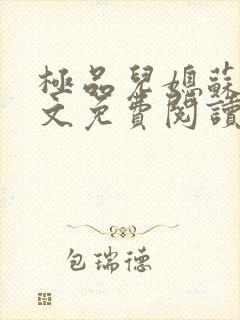 極品兒媳蘇
文免費閱讀
包瑞德